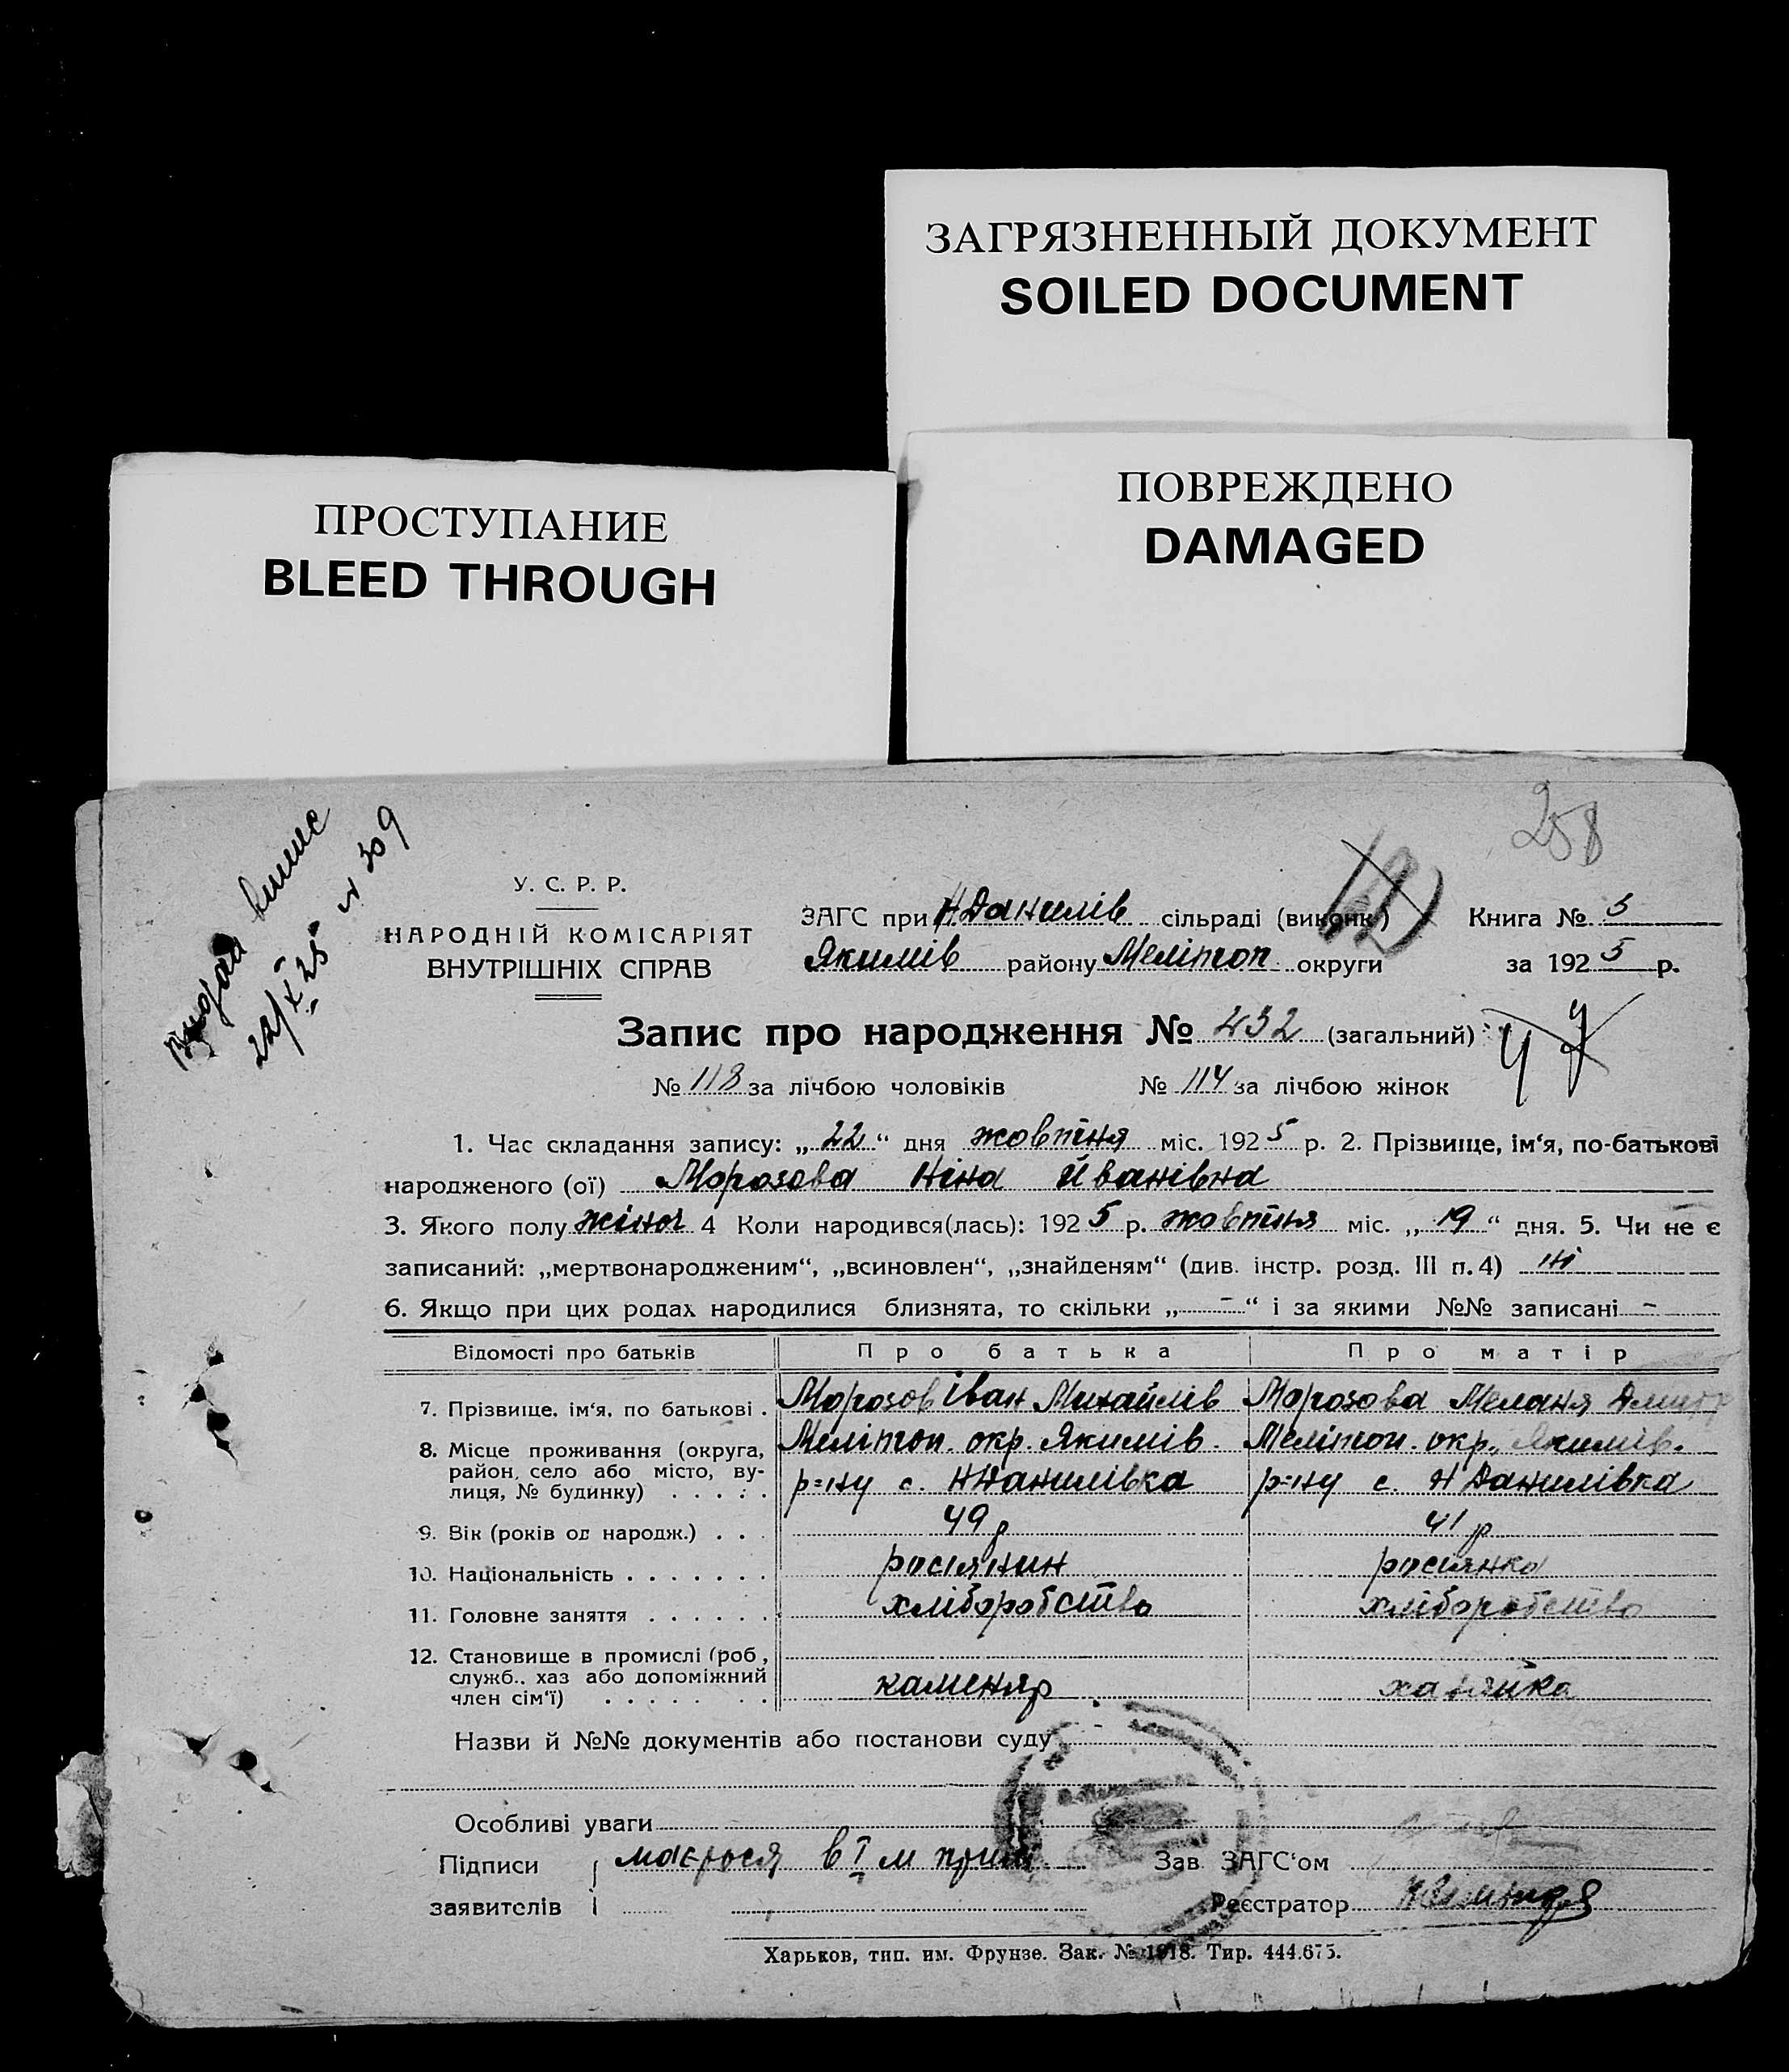 ЗАГРЯЗНЕННЫЙ ДОКУМЕНТ
SOILED DOCUMENT
ПРОСТУПАНИЕ
BLEED THROUGH
ПОВРЕЖДЕНО
DAMAGED
258
22/X 25 н 309
У. С. Р. Р.
НАРОДНІЙ КОМІСАРІЯТ
ВНУТРІШНІХ СПРАВ
ЗАГС при Н Данилів сільраді (виконк.) Книга № 5
Якимів району Мелітоп округи за 1925 р.
Запис про народження № 232 (загальний)
№ 118 за лічбою чоловіків № 114 за лічбою жінок
1. Час складання запису: „22“ дня жовтня міс. 1925 р. 2. Прізвище, ім‘я, по-батькові
народженого (ої) Морозова Ніна Йванівна
3. Якого полу жіноч 4 Коли народився(лась): 1925 р. жовтня міс. „19“ дня. 5. Чи не є
записаний: „мертвонародженим“, „всиновлен“, „знайденям“ (див. інстр. розд. III п. 4) ні
6. Якщо при цих родах народилися близнята, то скільки „-“ і за якими №№ записані -
Відомості про батьків Про батька Про матір
7. Прізвище, ім‘я, по батькові . Морозов Іван Михайлів Морозова Меланя Дмитр
8. Місце проживання (округа, Мелітоп. окр. Якимів. Мелітоп. окр. Якимів.
район, село або місто, ву-
лиця, № будинку) . . . . . р=ну с. Н Данилівка р=ну с. Н Данилівка
9. Вік (років од народж.) . . . 49 р 41 р
10. Національність . . . . . . . росіянин росіянка
11. Головне заняття . . . . . . хліборобство хліборобство
12. Становище в промислі (роб,
служб., хаз або допоміжний
член сім‘ї) . . . . . . . каменяр хазяйка
Назви й №№ документів або постанови суду -
Особливі уваги
Підписи мається в І м прим. Зав. ЗАГС‘ом
заявителів Реєстратор
Харьков, тип. им. Фрунзе. Зак. № 1918. Тир. 444.675.